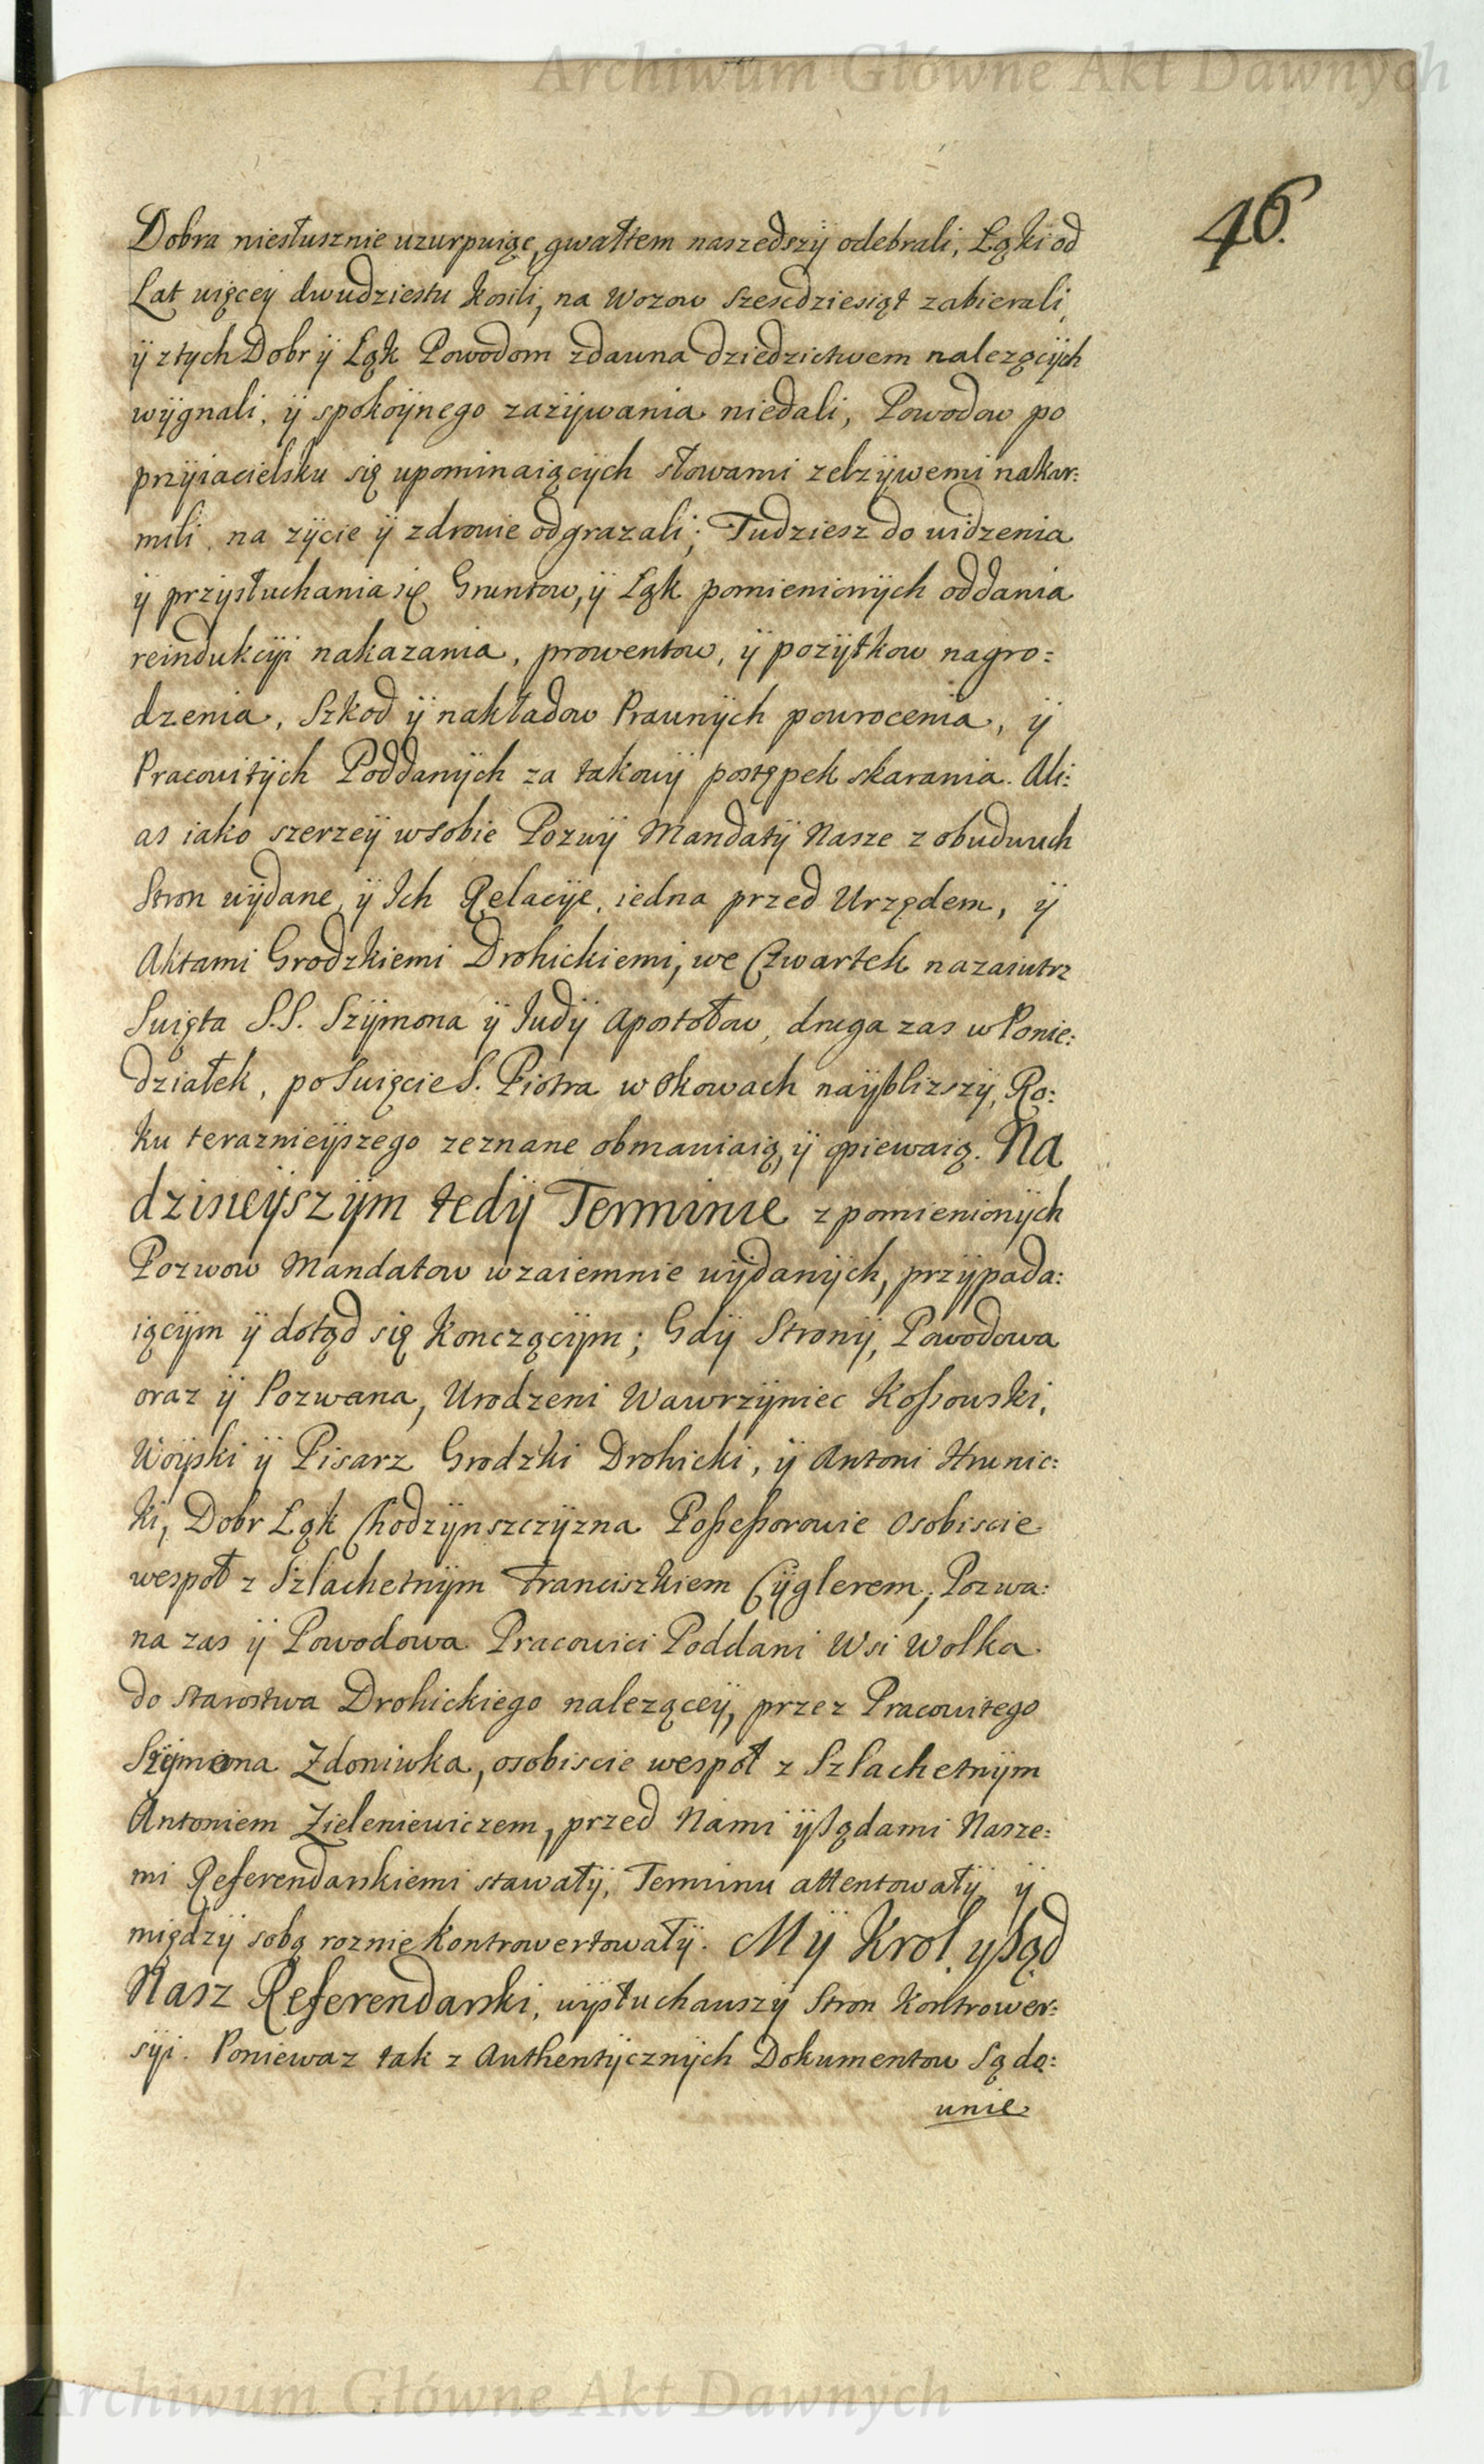 Archiwum Główne Akt Dawnych
46.
Dobra niesłusznie uzurpuiąc, gwałtem naszedszÿ odebrali, Łąki od
Lat więcey dwudziestu kosili, na Wozow szescdziesiąt zabierali,
ÿ ztÿch Dobr ÿ Łąk Powodom zdawna dziedzictwem nalezącÿch
wÿgnali, ÿ spokoÿnego zazÿwania niedali, Powodow po
przÿiacielsku się upominaiącÿch słowami zelzÿwemi nakar:
mili, na zÿcie ÿ zdrowie odgrazali; Tudziesz do widzenia
ÿ przÿsłuchania się Gruntow, ÿ Łąk pomienionÿch oddania
reindukcÿi nakazania, prowentow, ÿ pozÿtkow nagro:
dzenia, Szkod ÿ nakładow Prawnÿch powrocenia, ÿ
Pracowitÿch Poddanÿch za takowÿ postępek skarania. Ali:
as iako szerzeÿ wsobie Pozwÿ Mandatÿ Nasze z obudwuch
Stron wÿdane, ÿ Ich Relacÿe, iedna przed Urzędem, ÿ
Aktami Grodzkiemi Drohickiemi, we Czwartek nazaiutrz
Swięta S.S. Szÿmona ÿ Judÿ Apostołow, druga zas w Ponie:
działek, po Swięcie S. Piotra w Okowach naÿblizszÿ, Ro:
ku teraznieÿszego zeznane obmawiaią, ÿ opiewaią. Na
dzisieÿszÿm tedÿ Terminie z pomienionÿch
Pozwow Mandatow wzaiemnie wÿdanÿch, przÿpada:
iącÿm ÿ dotąd się konczącÿm; Gdÿ Stronÿ, Powodowa
oraz ÿ Pozwana, Urodzeni Wawrzÿniec Koßowski,
Woÿski ÿ Pisarz Grodzki Drohicki, ÿ Antoni Hrunic:
ki, Dobr Łąk Chodzÿnszczÿzna Poßeßorowie osobiscie
wespoł z Szlachetnÿm Franciszkiem Cÿglerem, Pozwa:
na zas ÿ Powodowa Pracowici Poddani Wsi Wolka
do Starostwa Drohickiego nalezącey, przez Pracowitego
Szÿmona Zdoniwka, osobiscie wespoł z Szlachetnÿm
Antoniem Zieleniewiczem, przed Nami ÿ Sądami Nasze:
mi Referendarskiemi stawałÿ, Terminu attentowałÿ ÿ
międzÿ sobą roznie kontrowertowałÿ. Mÿ Krol ÿ Sąd
Nasz Referendarski, wÿsłuchawszÿ Stron Kontrower:
sÿi. Poniewaz tak z Authentÿcznÿch Dokumentow Sądo:
wnie
Archiwum Główne Akt Dawnych